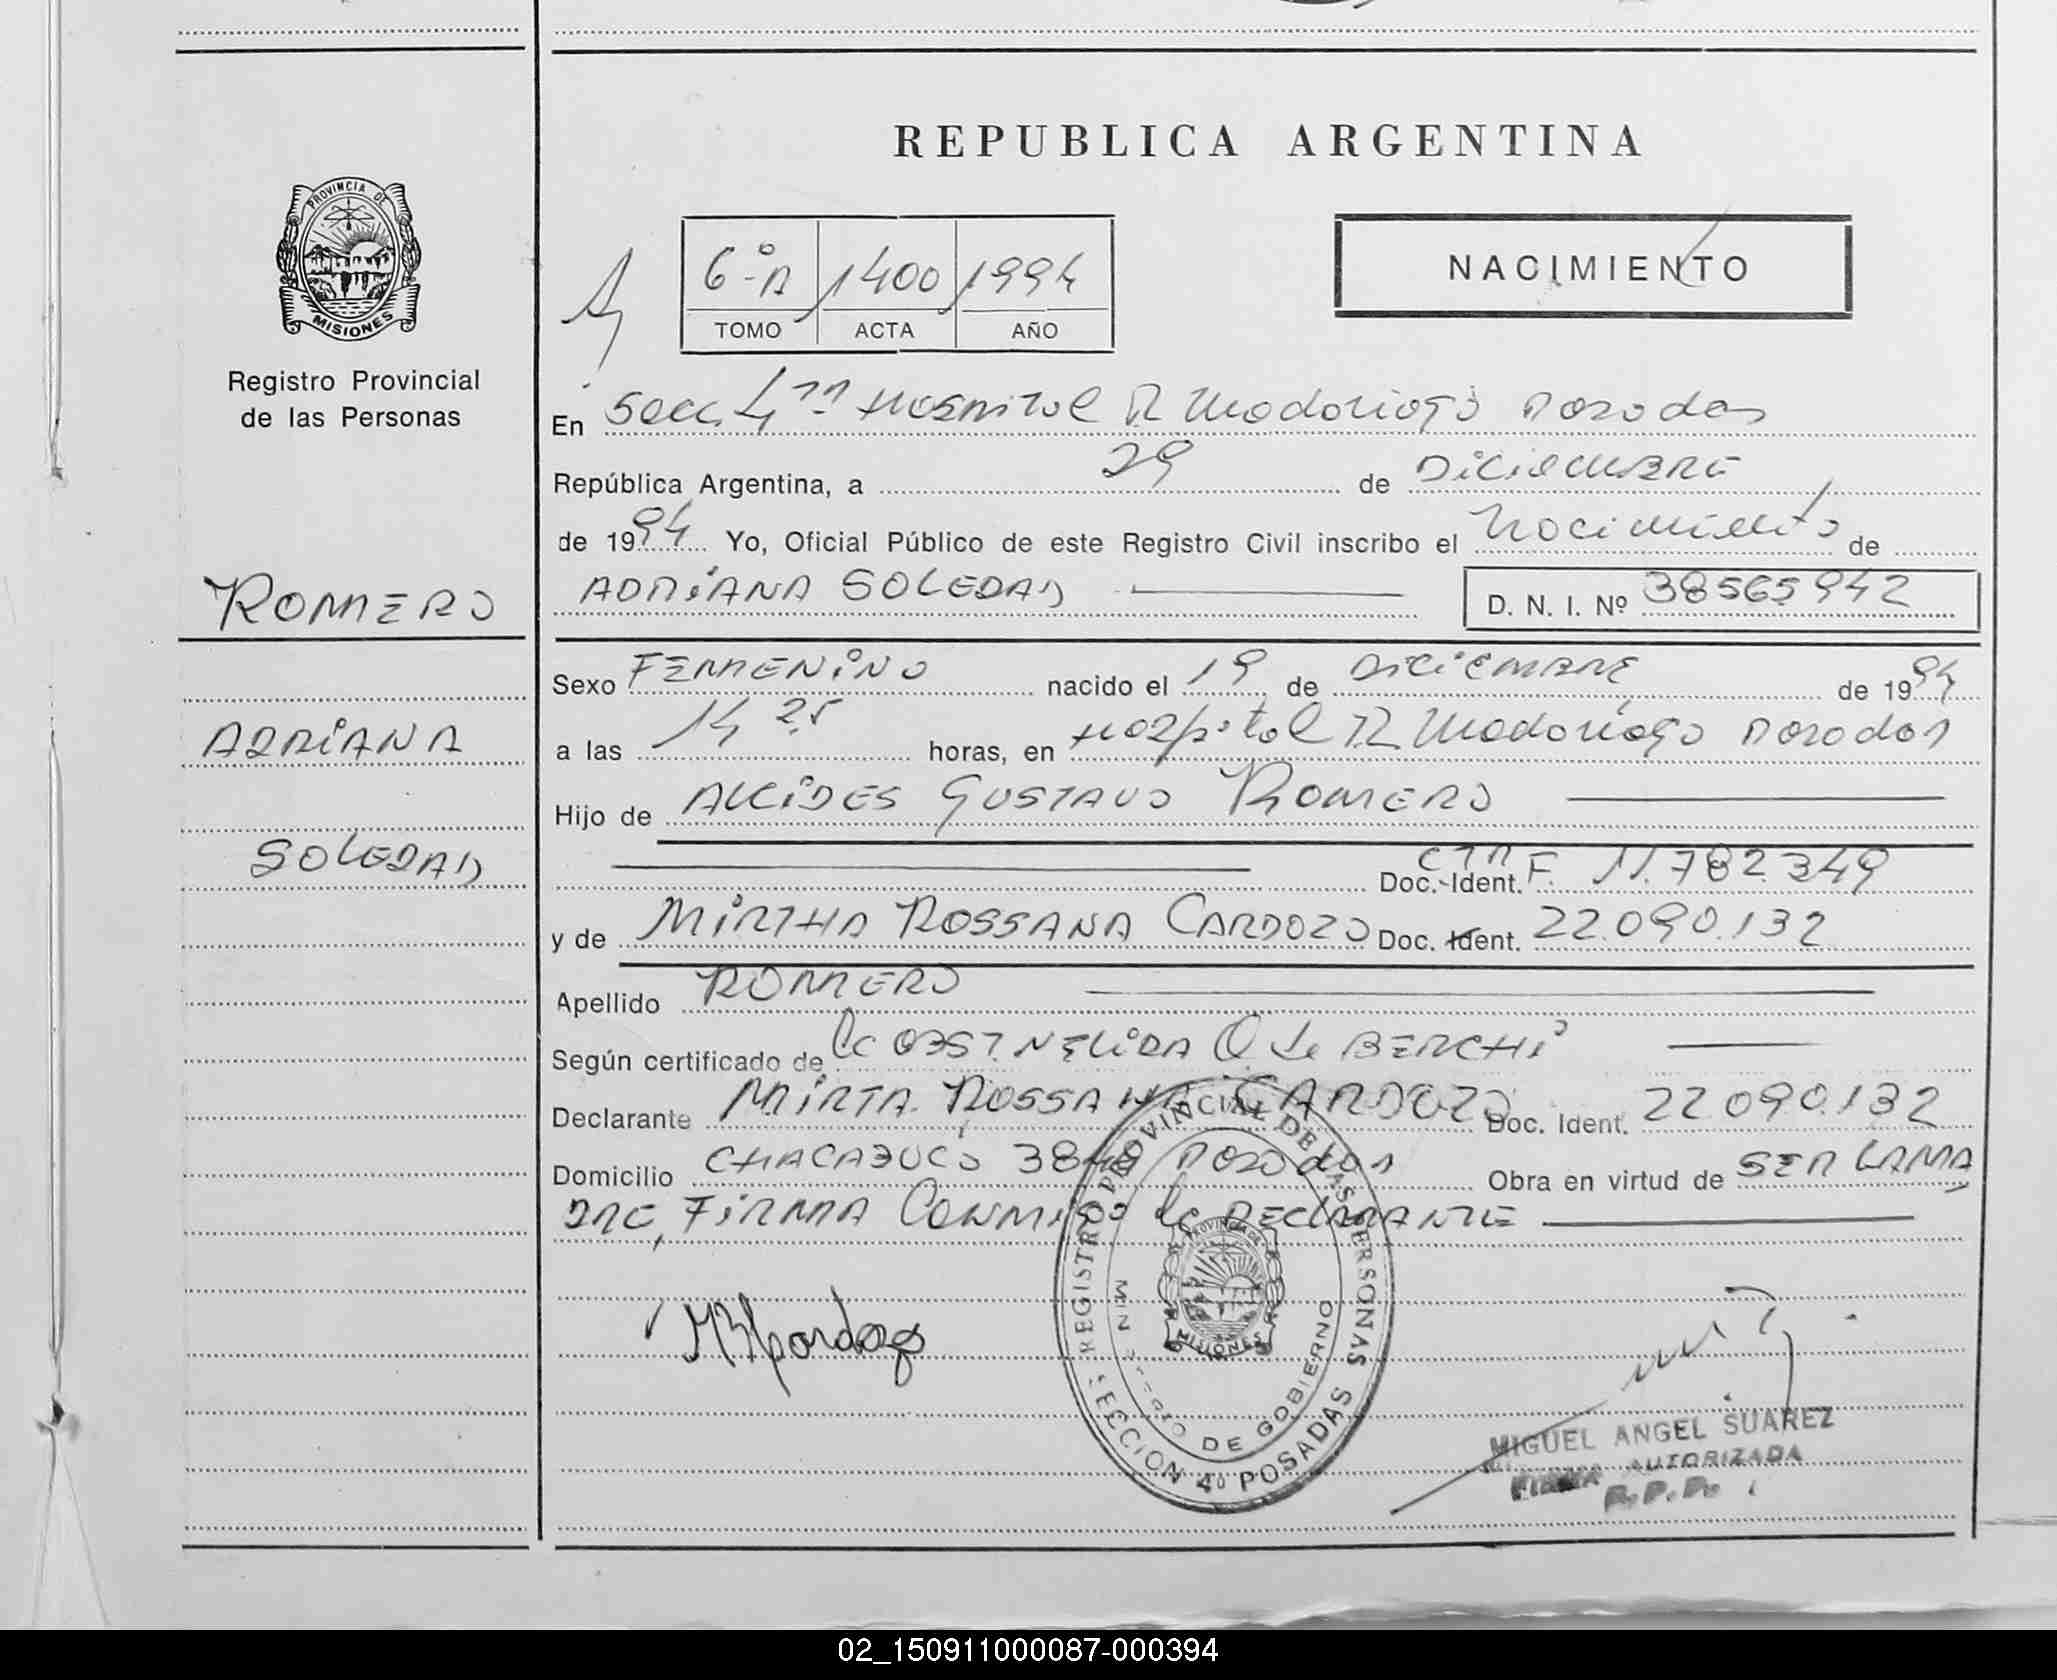 REPUBLICA ARGENTINA
PROVINCIA DE
MISIONES
Registro Provincial
de las Personas
6º A 1400 1994
TOMO ACTA AÑO
NACIMIENTO
En Secc. 4ta Hospital R Madariaga Posadas
República Argentina, a 29 de DICIEMBRE
de 1994 Yo, Oficial Público de este Registro Civil inscribo el Nacimiento de
ROMERO
ADRIANA SOLEDAD D. N. I. Nº 38565942
Sexo FEMENINO nacido el 19 de DICIEMBRE de 1994
ADRIANA
a las 14 25 horas, en Hospital R. Madariaga Posadas
Hijo de ALCIDES GUSTAVO ROMERO
SOLEDAD
Doc. Ident. F. 11.782.349
y de MIRTHA ROSSANA CARDOZO Doc. Ident. 22.090.132
Apellido ROMERO
Según certificado de la OBST. NELIDA Q de BERCHI
Declarante MIRTA ROSSANA CARDOZO Doc. Ident. 22.090.132
Domicilio CHACABUCO 3848 Posadas Obra en virtud de SER LA MA
DRE, FIRMA CONMIGO la DECLARANTE
REGISTRO PROVINCIAL DE LAS PERSONAS
PROVINCIA DE
MISIONES
MINISTERIO DE GOBIERNO
SECCION 4º POSADAS
MRCardozo
MIGUEL ANGEL SUAREZ
FIRMA AUTORIZADA
R.P.P.
02_150911000087-000394